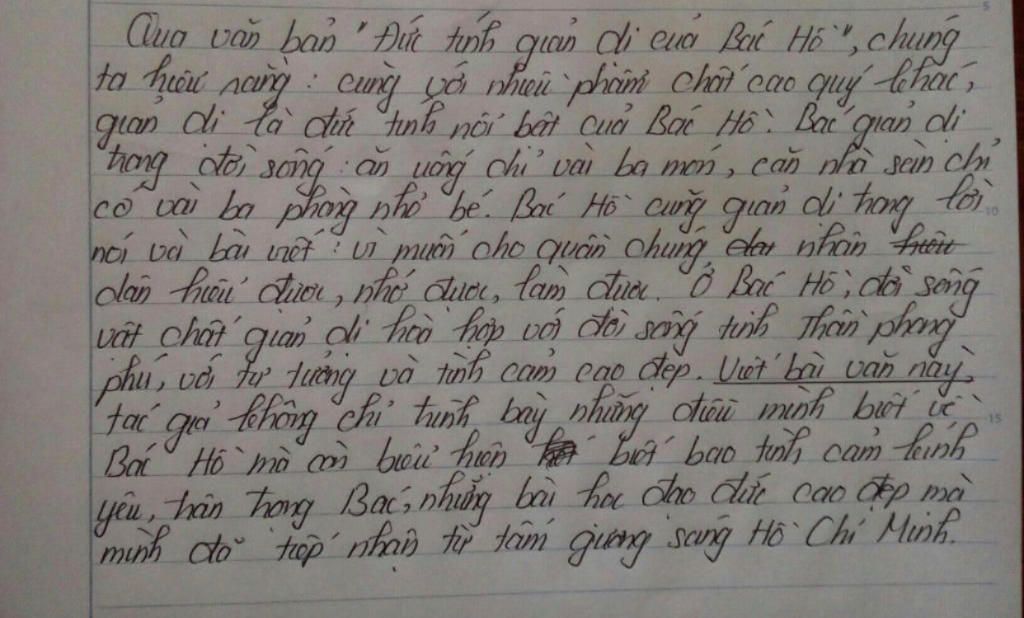 Qua văn bản "Đức tính giản dị của Bác Hồ", chúng
ta hiểu rằng: cùng với nhiều phẩm chất cao quý khác,
giản dị là đức tính nổi bật của Bác Hồ. Bác giản dị
trong đời sống: ăn uống chỉ vài ba món, căn nhà sàn chỉ
có vài ba phòng nhỏ bé. Bác Hồ cũng giản dị trong lời
nói và bài viết: vì muốn cho quần chúng nhân
dân hiểu được, nhớ được, làm được. Ở Bác Hồ, đời sống
vật chất giản dị hoà hợp với đời sống tinh thần phong
phú, với tư tưởng và tình cảm cao đẹp. Viết bài văn này,
tác giả không chỉ trình bày những điều mình biết về
Bác Hồ mà còn biểu hiện biết bao tình cảm kính
yêu, trân trọng Bác, những bài học đạo đức cao đẹp mà
mình đã tiếp nhận từ tấm gương sáng Hồ Chí Minh.
5
10
15